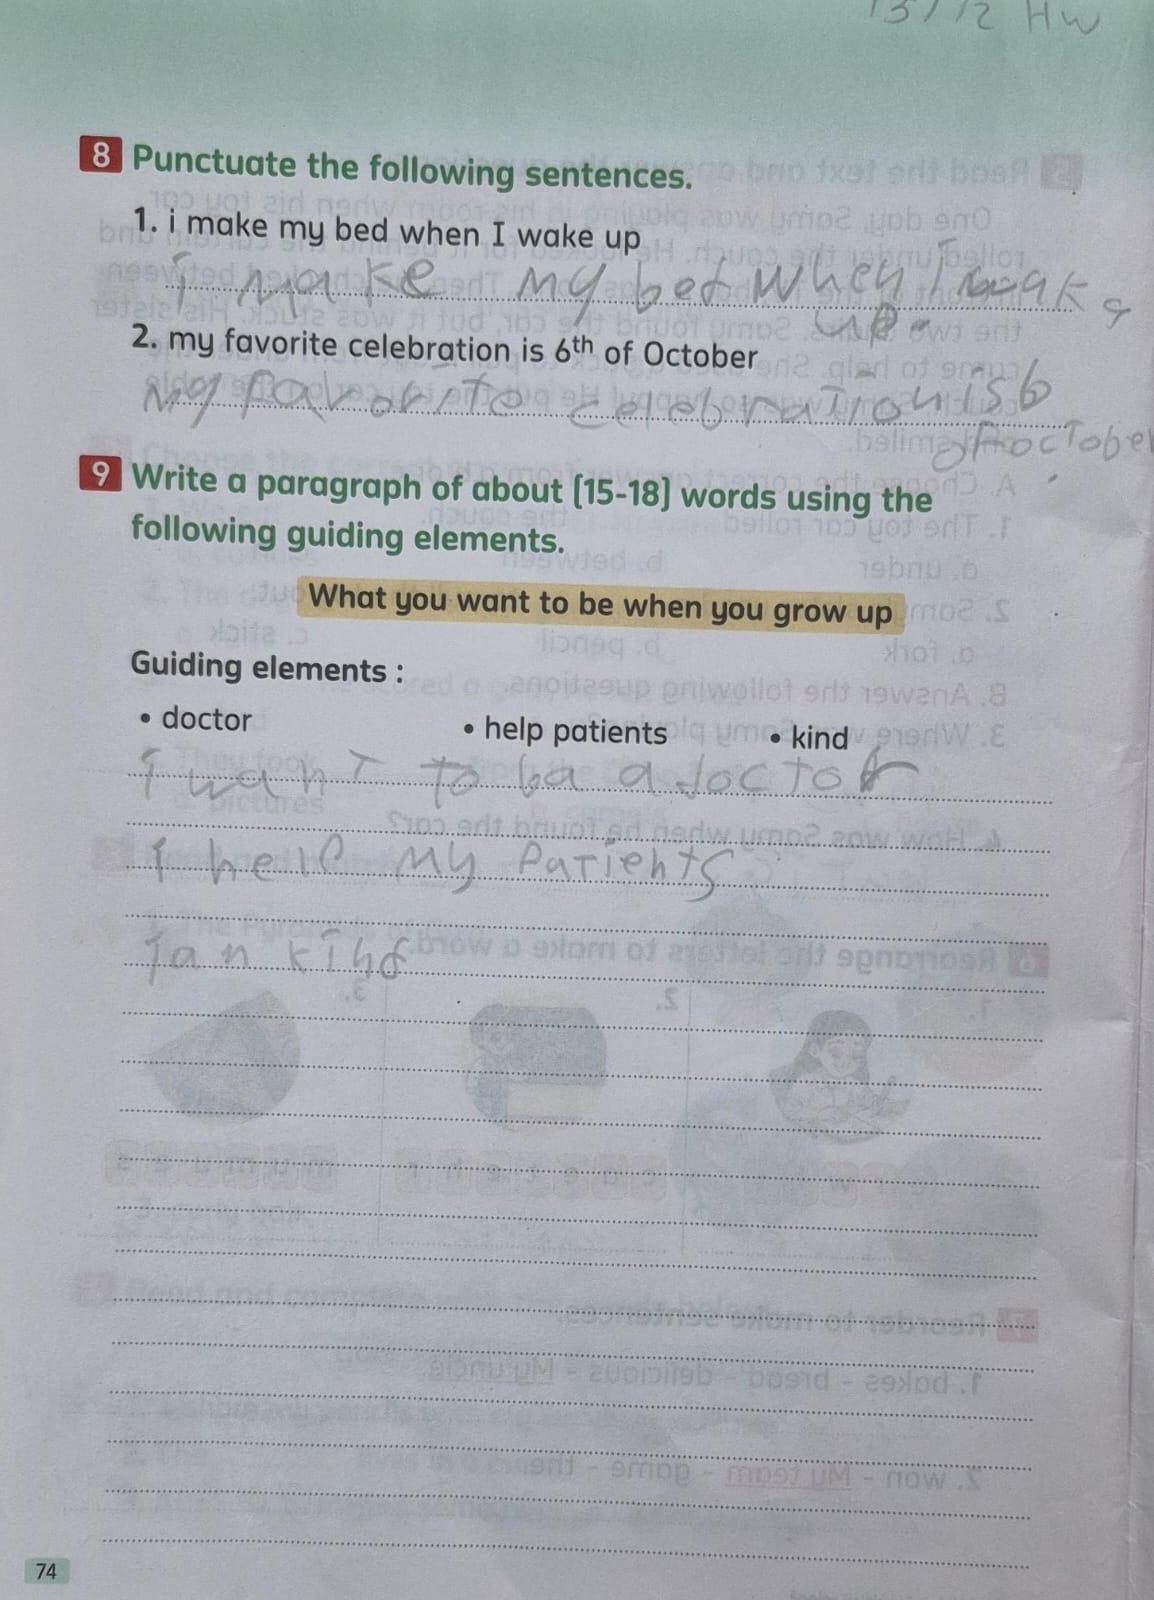 13/12 HW
8 Punctuate the following sentences.
1. i make my bed when I wake up
I make my bed when I wake
up.
2. my favorite celebration is 6th of October
My favorite celebration is 6
of October
9 Write a paragraph of about (15-18) words using the
following guiding elements.
What you want to be when you grow up
Guiding elements :
• doctor • help patients • kind
I want to ba a doctor
I help my Patients
I an kind
74